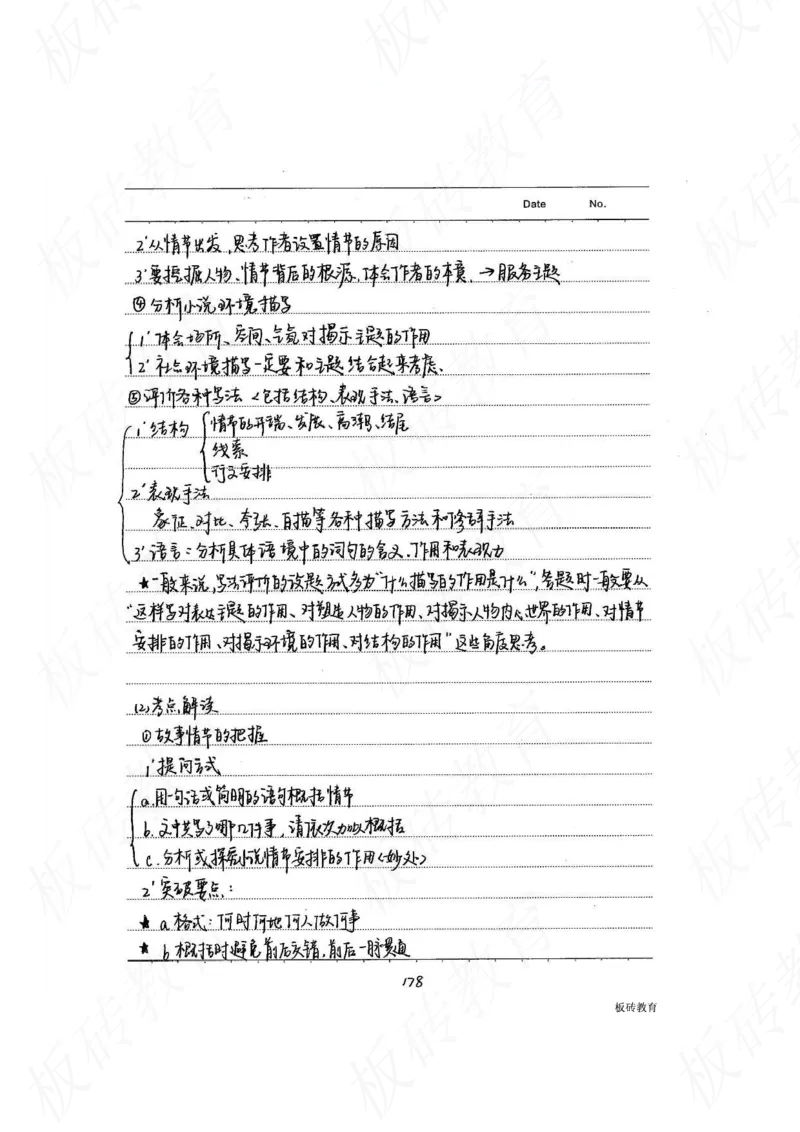 Date No.
2' 从情节出发,思考作者设置情节的原因
3' 要挖掘人物、情节背后的根源,体会作者的本意.→服务主题
④ 分析小说环境描写
1' 体会场所、空间、气氛对揭示主题的作用
2' 社会环境描写一定要和主题结合起来考虑.
⑤评价各种写法<包括结构、表现手法、语言>
1' 结构 情节的开端、发展、高潮、结尾
线索
行文安排
2' 表现手法
象征、对比、夸张、白描等各种描写方法和修辞手法
3' 语言:分析具体语境中的词句的含义、作用和表现力
★一般来说,写法评价的设题方式多为"什么描写的作用是什么",答题时一般要从
"这样写对表达主题的作用、对塑造人物的作用、对揭示人物内心世界的作用、对情节
安排的作用、对揭示环境的作用、对结构的作用"这些角度思考。
(2)考点解读
①故事情节的把握
1' 提问方式
a.用一句话或简明的语句概括情节
b.文中共写了哪几件事,请依次加以概括
c.分析或探究小说情节安排的作用<妙处>
2' 突破要点:
★ a 格式:何时何地何人做何事
★ b 概括时避免前后交错,前后一脉贯通
178
板砖教育